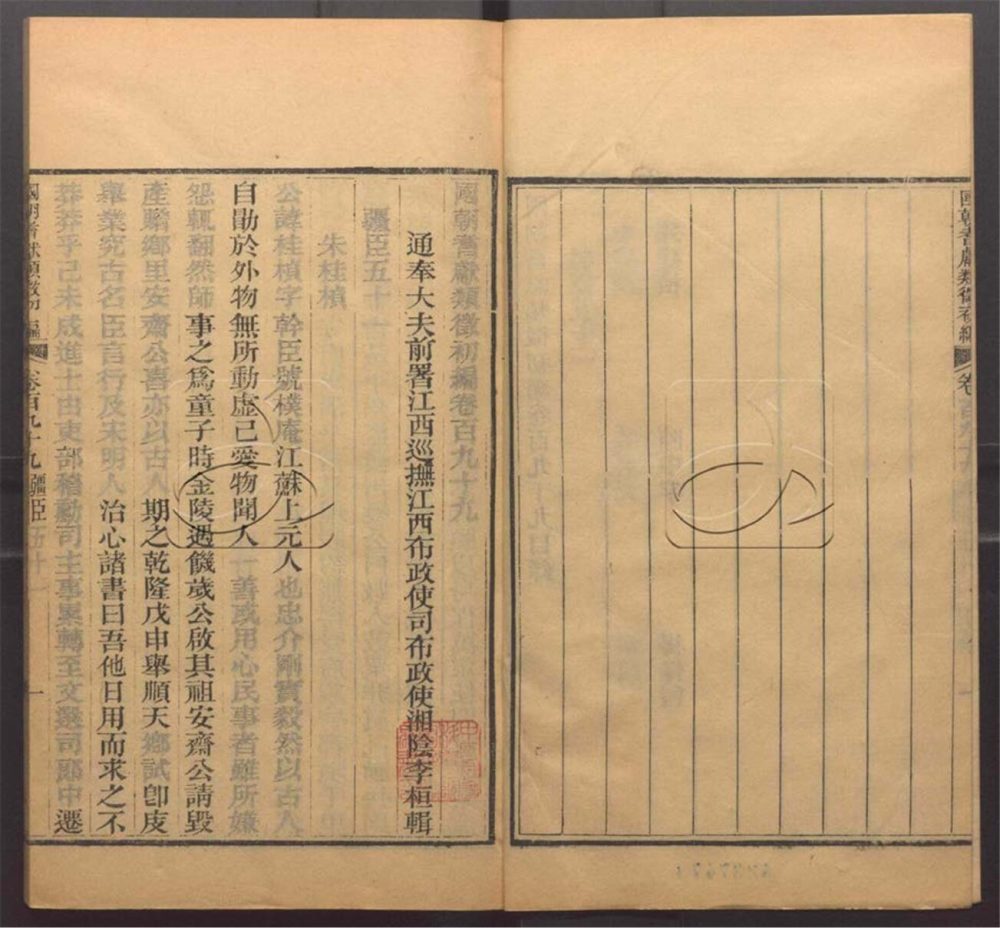 國朝耆獻類徵初編 卷百九十
國朝耆獻類徵初編卷百九十九
通奉大夫前署江西巡撫江西布政使司布政使湘陰李桓輯
疆臣五十一
朱桂楨
公諱桂楨字幹臣號樸庵江蘇上元人也忠介剛實毅然以古人
自勖於外物無所動虛己愛物聞人一善或用心民事者雖所嫌
怨輒翻然師事之爲童子時金陵遇饑歲公啟其祖安齋公請毀
產贍鄉里安齋公喜亦以古人期之乾隆戊申舉順天鄉試卽庋
舉業究古名臣言行及宋明人治心諸書曰吾他日用而求之不
莽莽乎己未成進士由吏部稽勳司主事累轉至文選司郎中遷
國朝耆獻類徵初編 卷百九十九 疆臣五十一 一